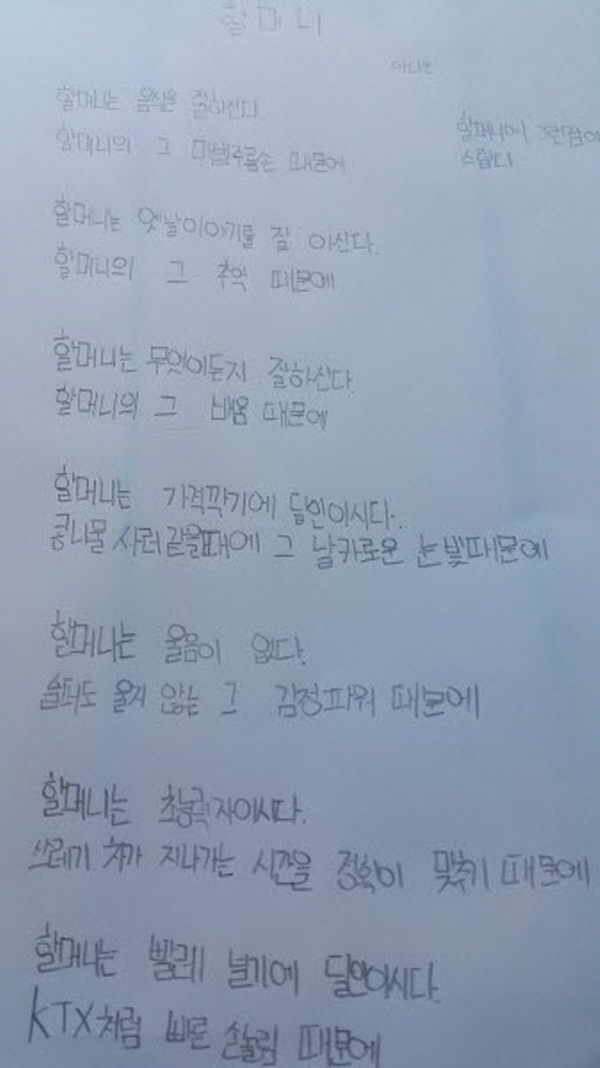 할머니
할머니는 음식을 잘하신다.
할머니의 그 마법수를손 때문에
할머니는 옛날이야기를 잘 아신다.
할머니의 그 추억 때문에
할머니는 무엇이든지 잘하신다.
할머니의 그 배움 때문에
할머니는 가격깍기에 달인이시다.
콩나물 사러갔을때에 그 날카로운 눈빛때문에
할머니는 울음이 없다.
슬퍼도 울지 않는 그 감정파워 때문에
할머니는 초능력자이시다.
쓰레기 차가 지나가는 시간을 정확이 맞추기 때문에
할머니는 빨래 널기에 달인이시다.
KTX처럼 빠른 손놀림 때문에
할머니에 그런점이
스럽다